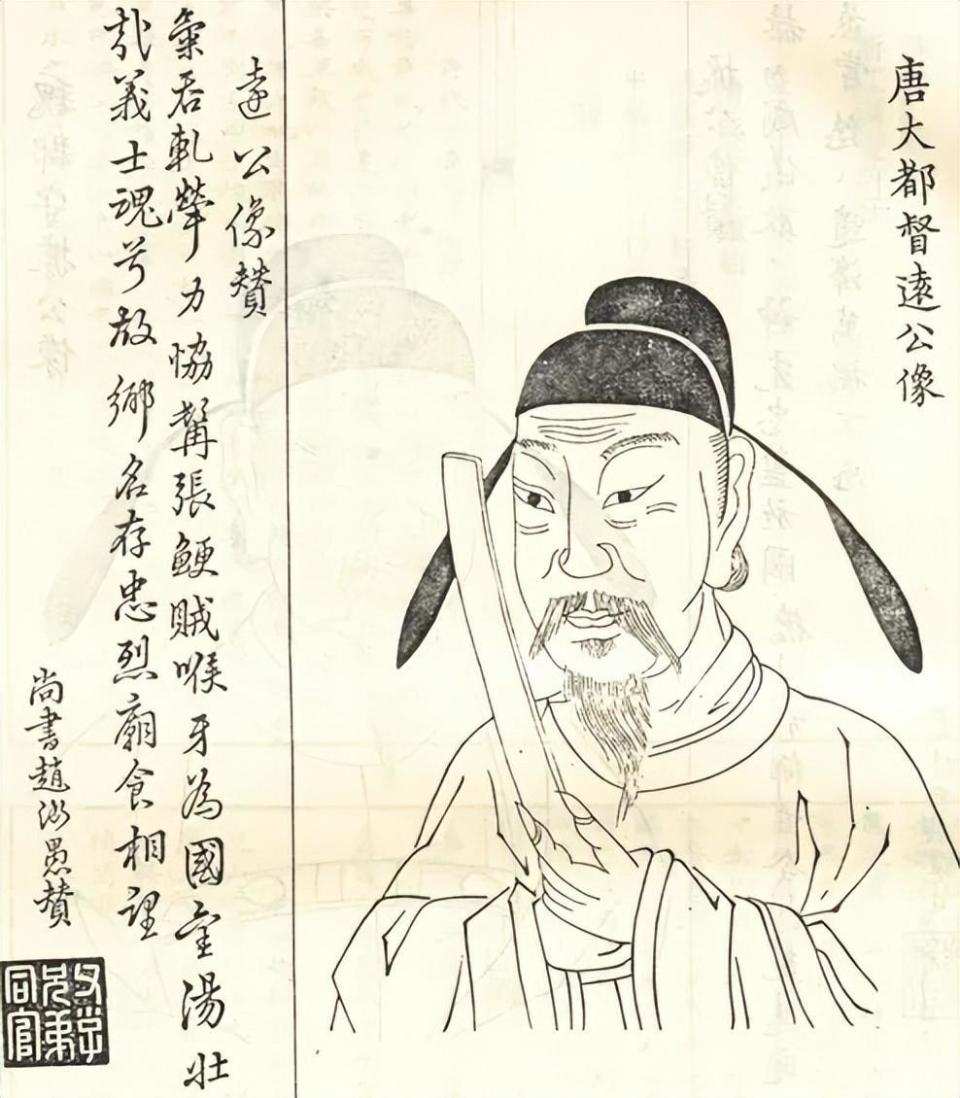 唐大都督遠公像
遠公像贊
氣吞軋犖力恊髯張鯁賊喉牙為國金湯壯
哉義士魂兮故鄉名存忠烈廟食相望
尚書趙汝愚贊
兄弟
同官